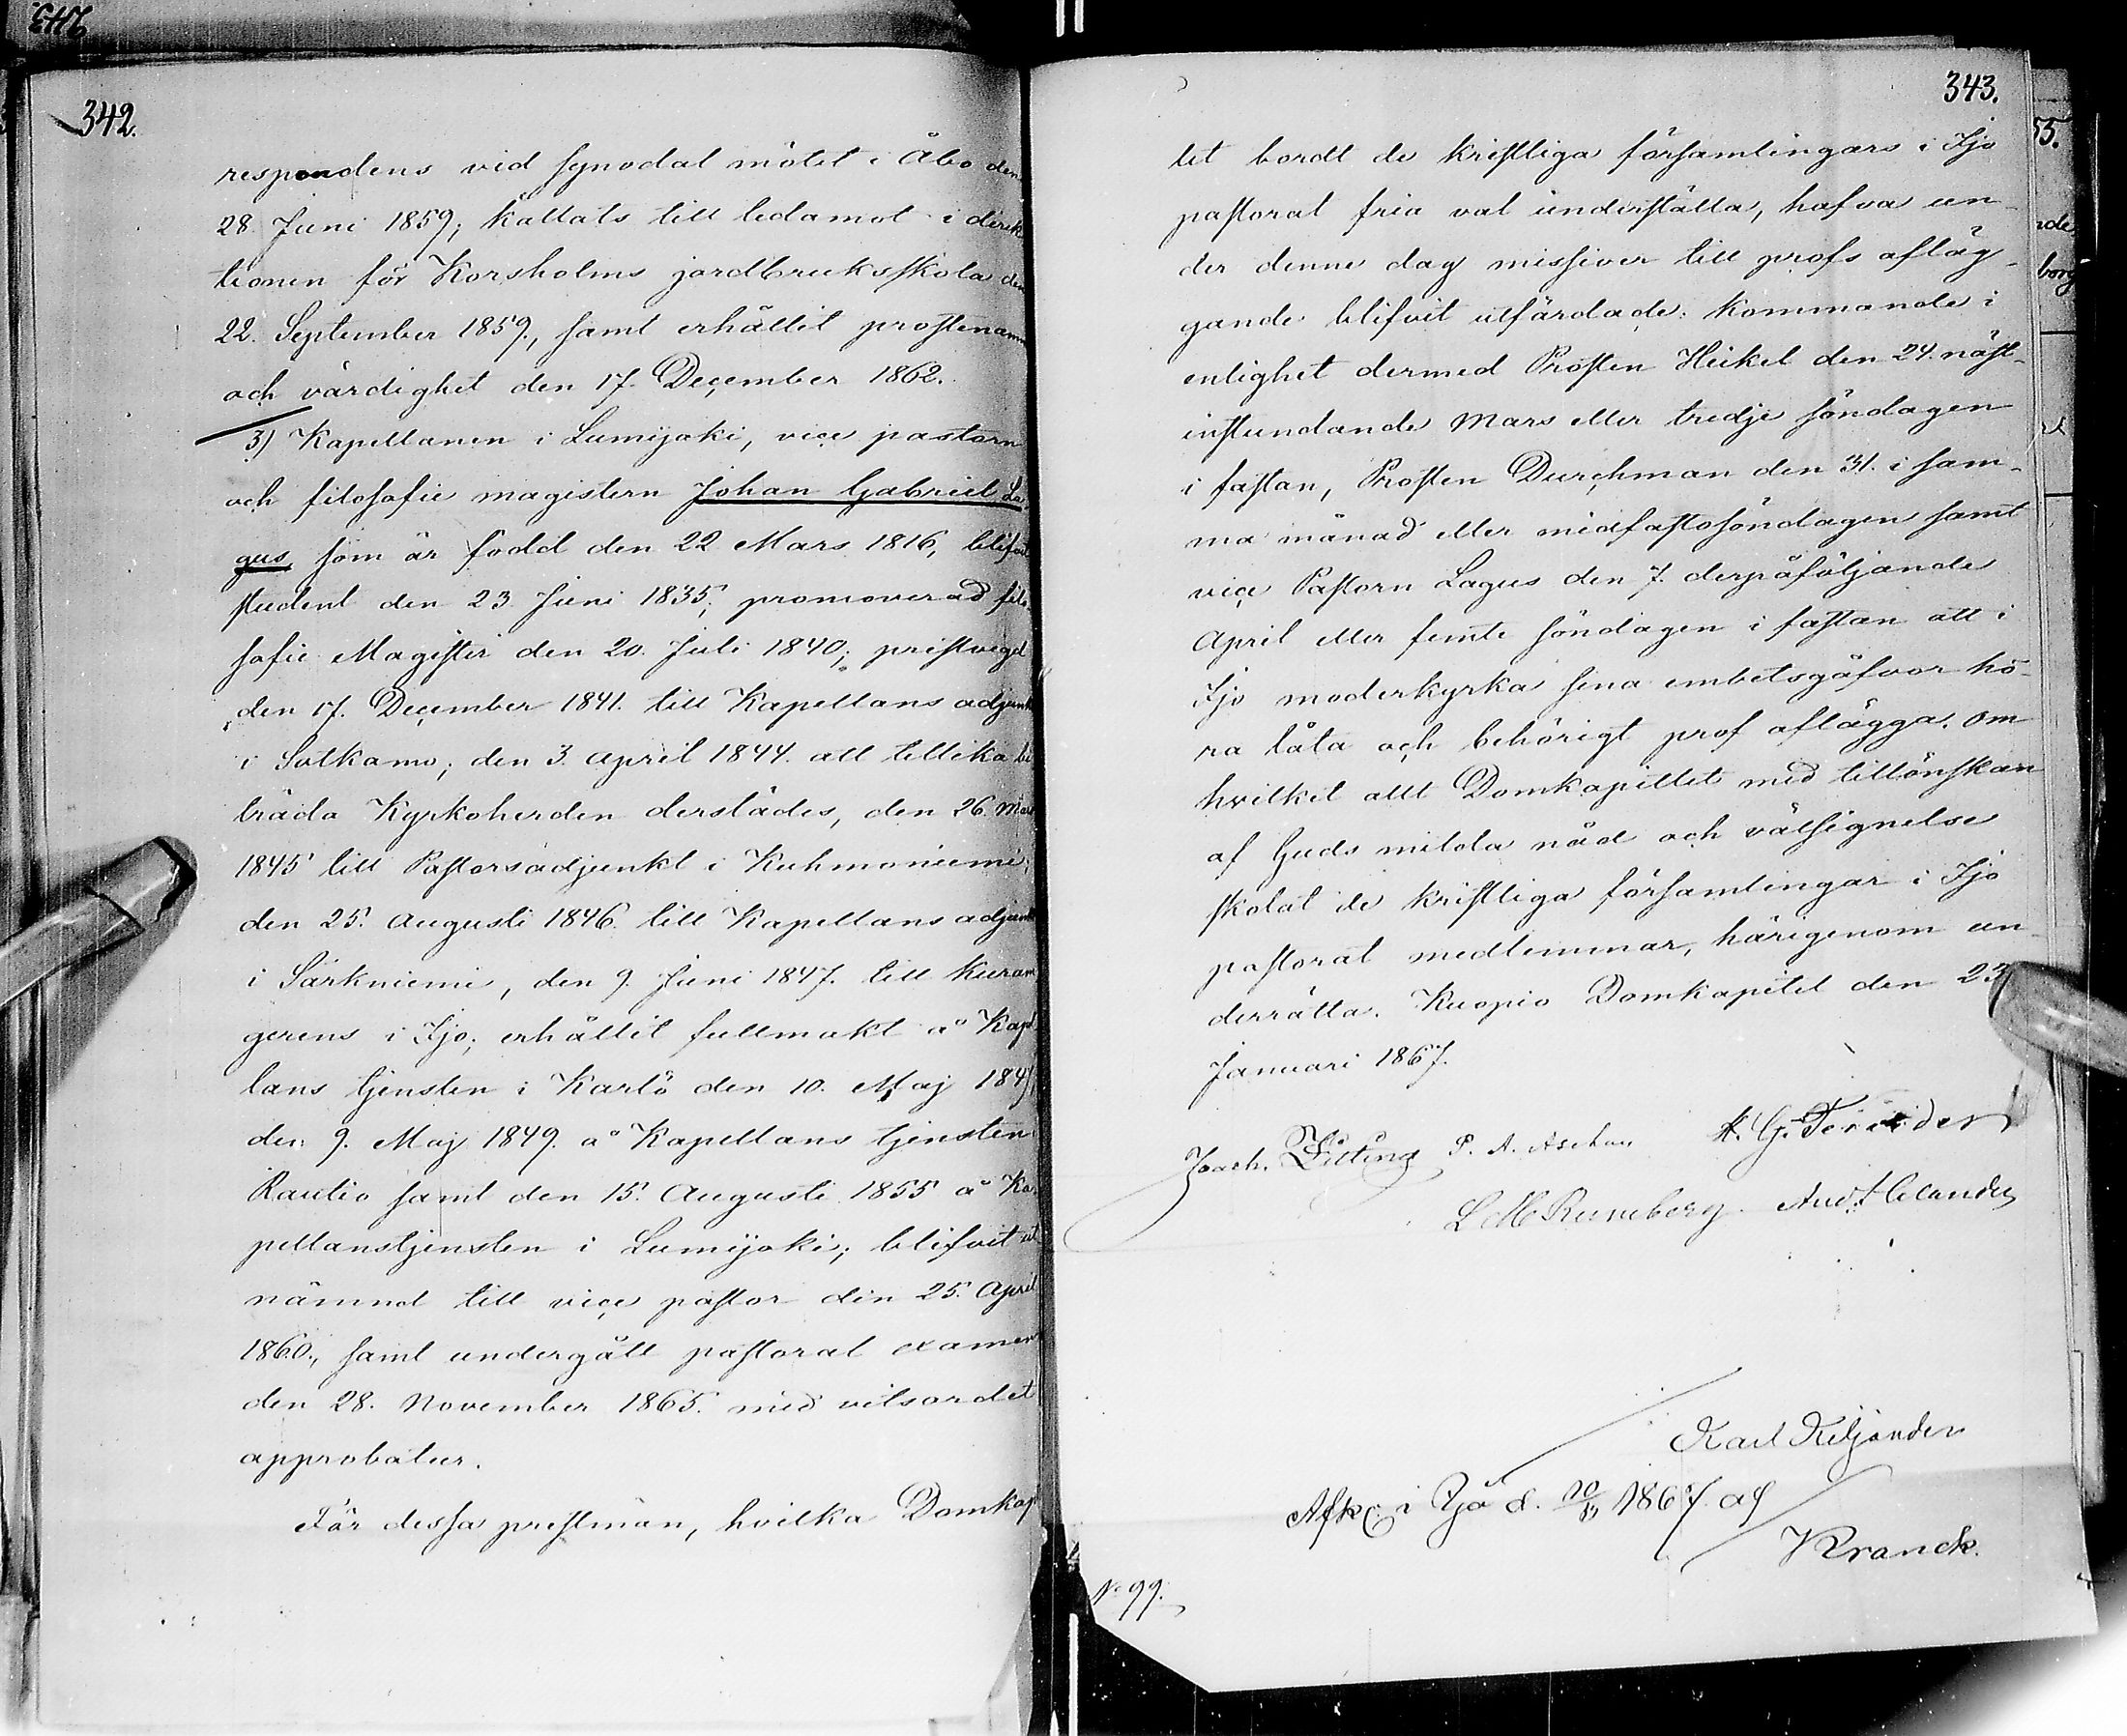 342.
respondens vid synodal mötet i Åbo den
28. Juni 1859; kallats till ledamot i direk
tionen för Korsholms jordbruksskola den
22. September 1859., samt erhållit prostenamn
och värdighet den 17. December 1862.
3) Kapellanen i Lumijoki, vice pastorn
och filosofie magistern Johan Gabriel La
gus, som är född den 22 Mars 1816, blifvit
student den 23 Juni 1835; promoverad filo
sofie Magister den 20. Juli 1840; prestvigd
den 17. December 1841. till Kapellans adjunkt
i Sotkamo; den 3. April 1844. att tillika bi
träda Kyrkoherden derstädes, den 26. Mars
1845 till Pastorsadjunkt i Kuhmoniemi,
den 25. Augusti 1846. till Kapellans adjunkt
i Särkniemi, den 9. Juni 1847. till Kuram
gerens i Ijo; erhållit fullmakt å Kapel
lans tjensten i Karlö den 10. Maj 1847,
den 9. Maj 1849. å Kapellans tjensten i
Rautio samt den 15. Augusti 1855 å Ka
pellanstjensten i Lumijoki; blifvit ut
nämnd till vice pastor den 25. April
1860., samt undergått pastoral examen
den 28. November 1865. med vitsordet
approbatur.
För dessa prestmän, hvilka Domkapi
343.
tlet bordt de kristliga församlingars i Ijo
pastorat fria val underställa, hafva un-
der denne dag missiver till profs afläg-
gande blifvit utfärdade: kommande i
enlighet dermed Prosten Heikel den 24. näst-
instundande Mars eller tredje söndagen
i fastan, Prosten Durchman den 31. i sam-
ma månad eller midfastosöndagen samt
vice Pastorn Lagus den 7. derpåföljande
April eller femte söndagen i fastan att i
Ijo moderkyrka sina embetsgåfvor hö-
ra låta och behörigt prof aflägga. Om
hvilket allt Domkapitlet med tillönskan
af Guds milda nåd och välsignelse
skolat de kristliga församlingar i Ijo
pastorat medlemmar, härigenom un-
derrätta. Kuopio Domkapitel den 23
Januari 1867.
Joach. Zitting P. A. Aschan A. G. Ferrinder
L M Runeberg. And. Helander
Karl Kiljander
Afk. i Ijo d. 10/3 1867. af
Kranck.
No 99.